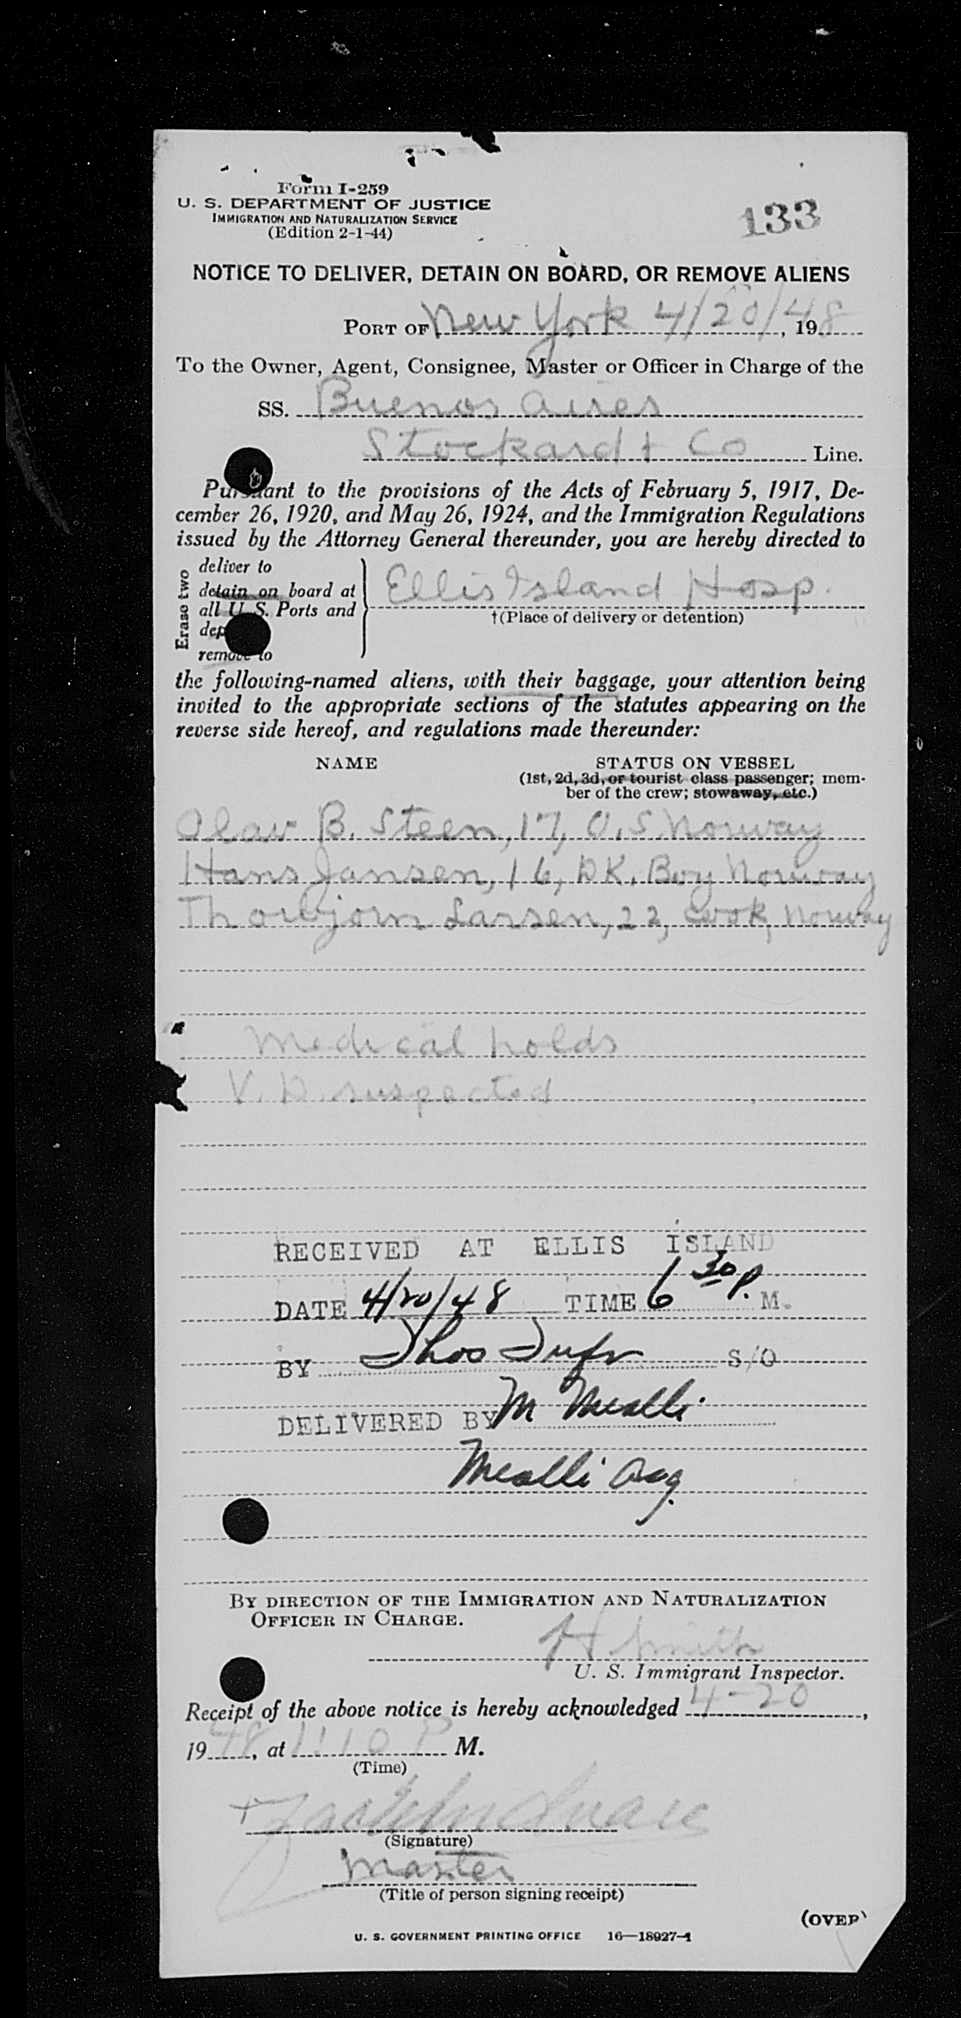 Form I-259
U. S. DEPARTMENT OF JUSTICE
IMMIGRATION AND NATURALIZATION SERVICE
(Edition 2-1-44)
133
NOTICE TO DELIVER, DETAIN ON BOARD, OR REMOVE ALIENS
PORT OF New York 4/20/48, 19
To the Owner, Agent, Consignee, Master or Officer in Charge of the
SS. Buenos Aires
Stockard & Co Line.
Pursuant to the provisions of the Acts of February 5, 1917, De-
cember 26, 1920, and May 26, 1924, and the Immigration Regulations
issued by the Attorney General thereunder, you are hereby directed to
Erase two
deliver to
detain on board at
all U. S. Ports and
dep
remove to
Ellis Island Hosp.
†(Place of delivery or detention)
the following-named aliens, with their baggage, your attention being
invited to the appropriate sections of the statutes appearing on the
reverse side hereof, and regulations made thereunder:
NAME STATUS ON VESSEL
(1st, 2d, 3d, or tourist class passenger; mem-
ber of the crew; stowaway, etc.)
Olav B. Steen, 17, O.S Norway
Hans Jansen, 16, DK. Boy Norway
Thorbjorn Larsen, 22, Cook, Norway
Medical holds
V. D. suspected
RECEIVED AT ELLIS ISLAND
DATE 4/20/48 TIME 6 30 P. M.
BY Thos S/O
DELIVERED BY M Mealli
Mealli
BY DIRECTION OF THE IMMIGRATION AND NATURALIZATION
OFFICER IN CHARGE.
H Smith
U. S. Immigrant Inspector.
Receipt of the above notice is hereby acknowledged 4-20,
1948, at 1:10 P M.
(Time)
(Signature)
Master
(Title of person signing receipt)
(OVER)
U. S. GOVERNMENT PRINTING OFFICE 16—18927-1